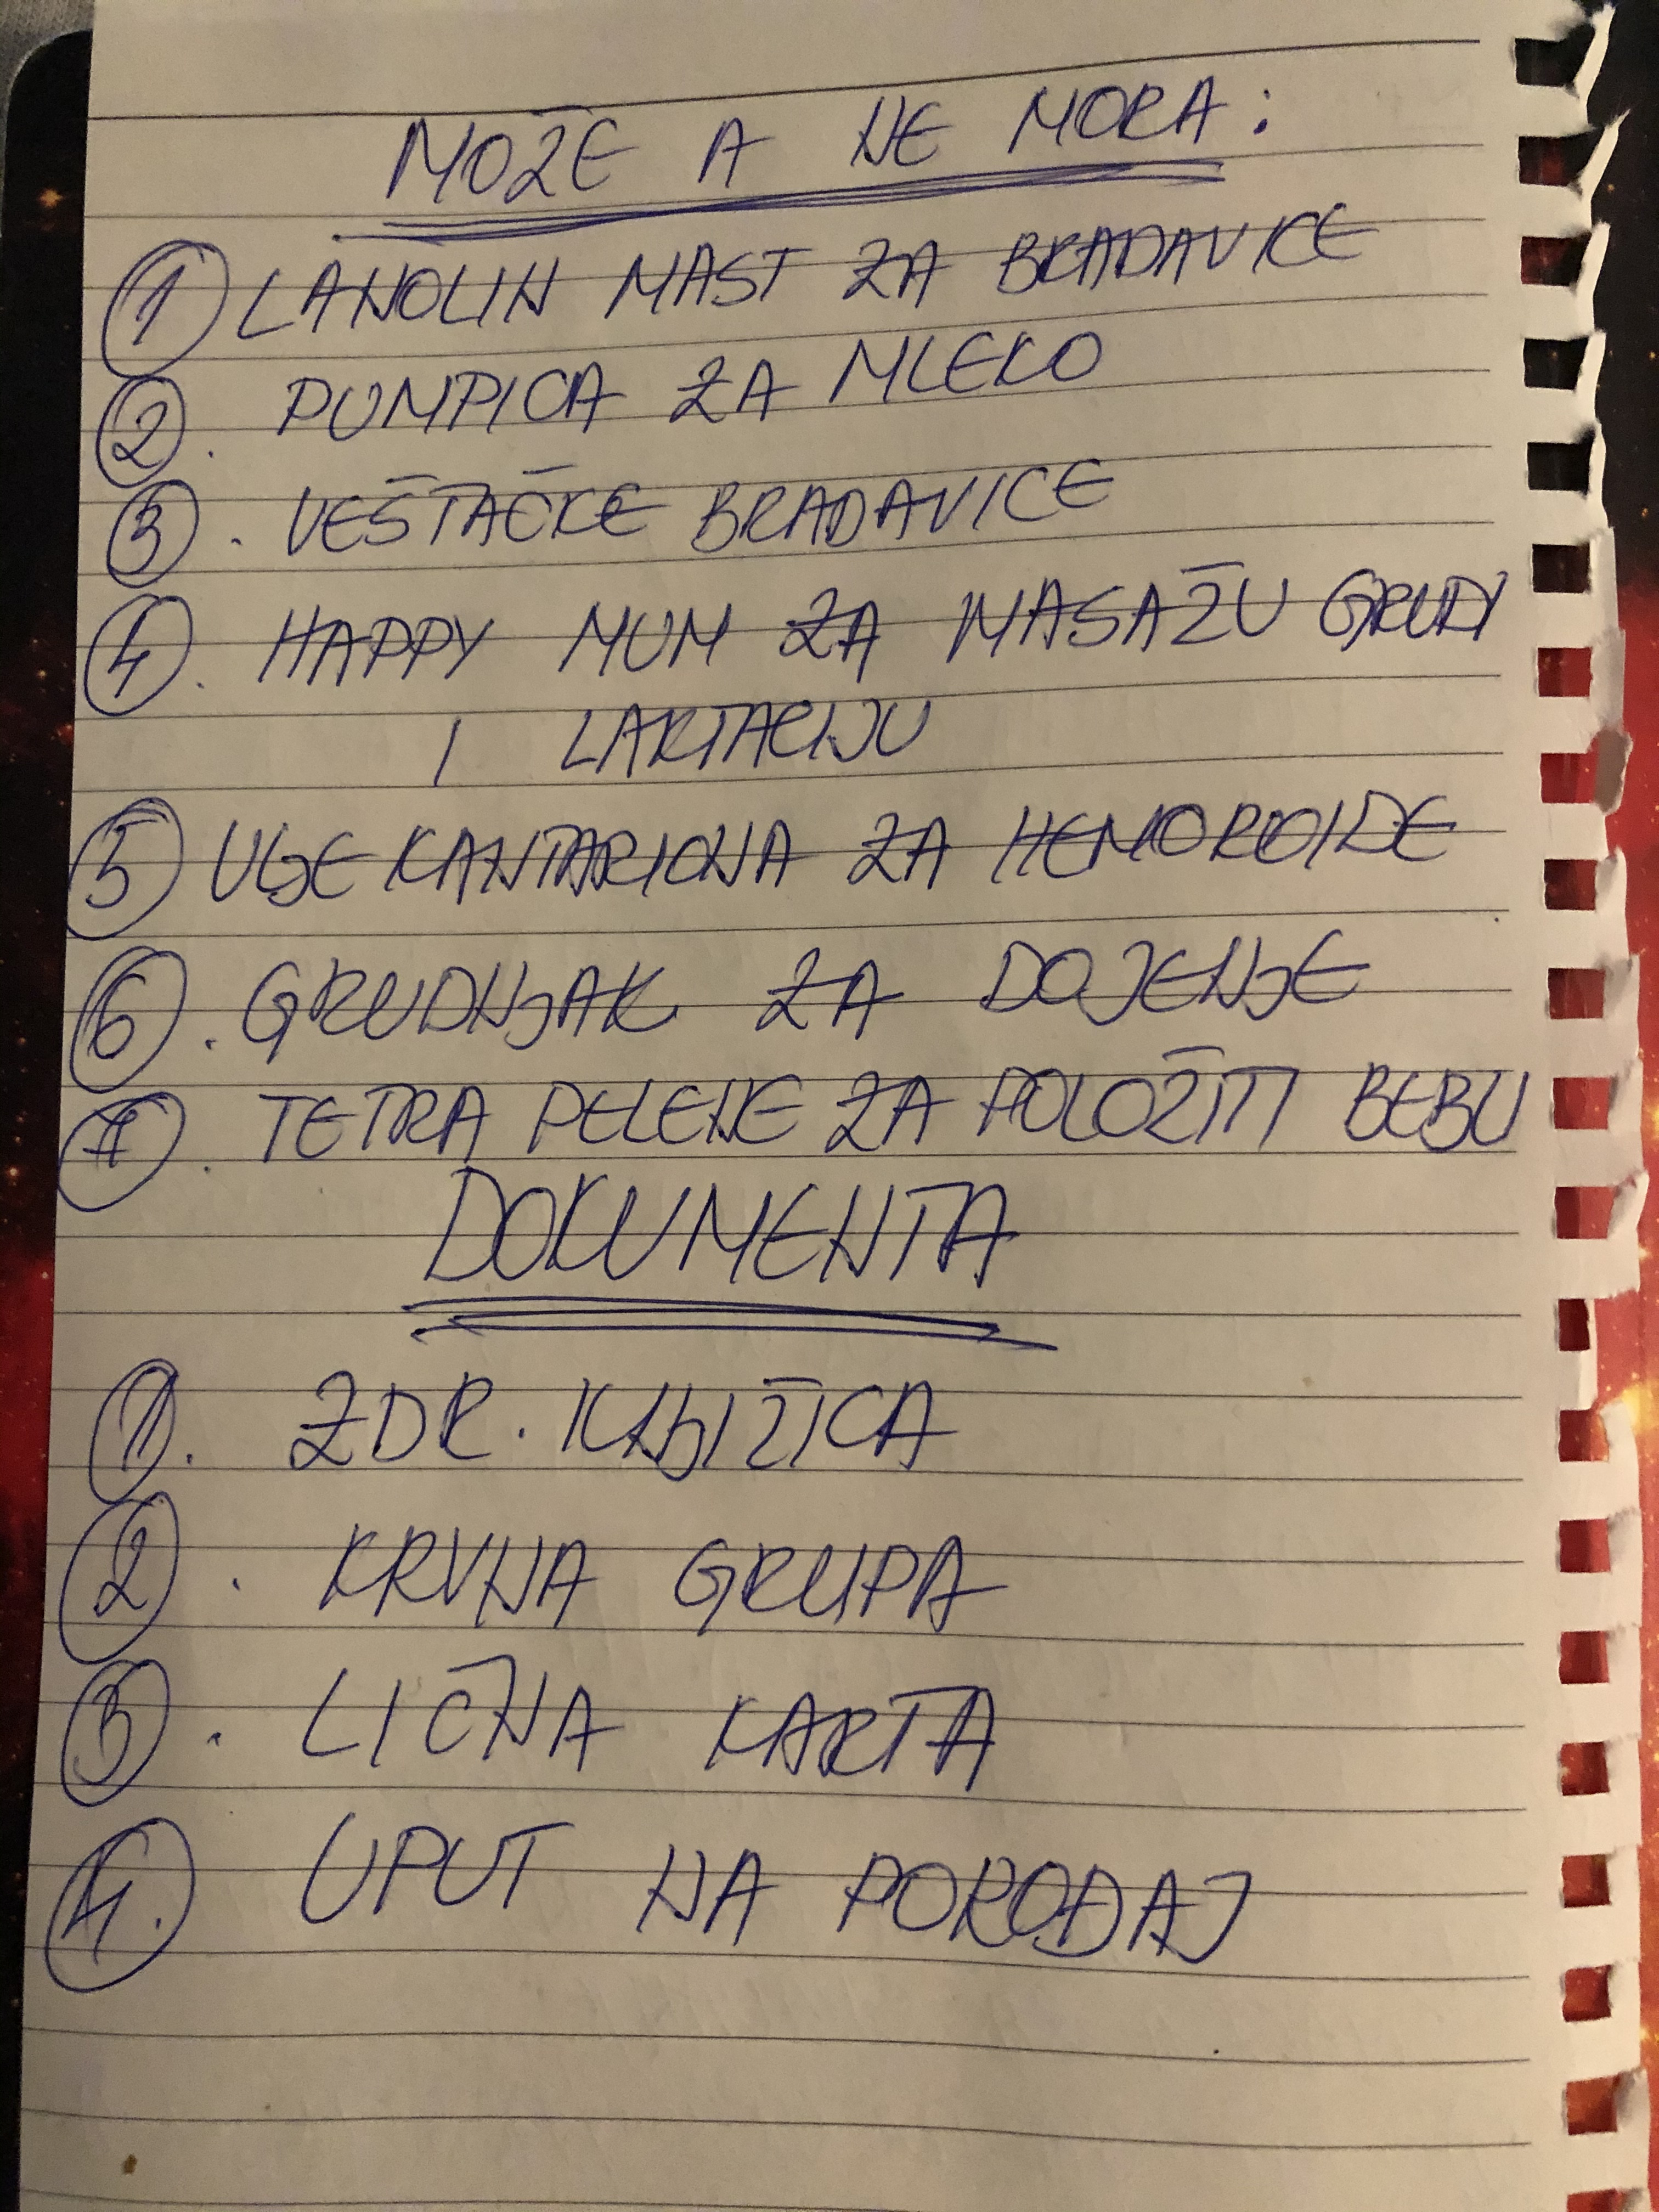 MOŽE A NE MORA:
1 LANOLIN MAST ZA BRADAVICE
2. PUMPICA ZA MLEKO
3. VEŠTAČKE BRADAVICE
4. HAPPY MUM ZA MASAŽU GRUDI
I LAKTACIJU
5 ULJE KANTARIONA ZA HEMOROIDE
6. GRUDNJAK ZA DOJENJE
7. TETRA PELENE ZA POLOŽITI BEBU
DOKUMENTA
1. ZDR. KNJIŽICA
2. KRVNA GRUPA
3. LIČNA KARTA
4. UPUT NA POROĐAJ